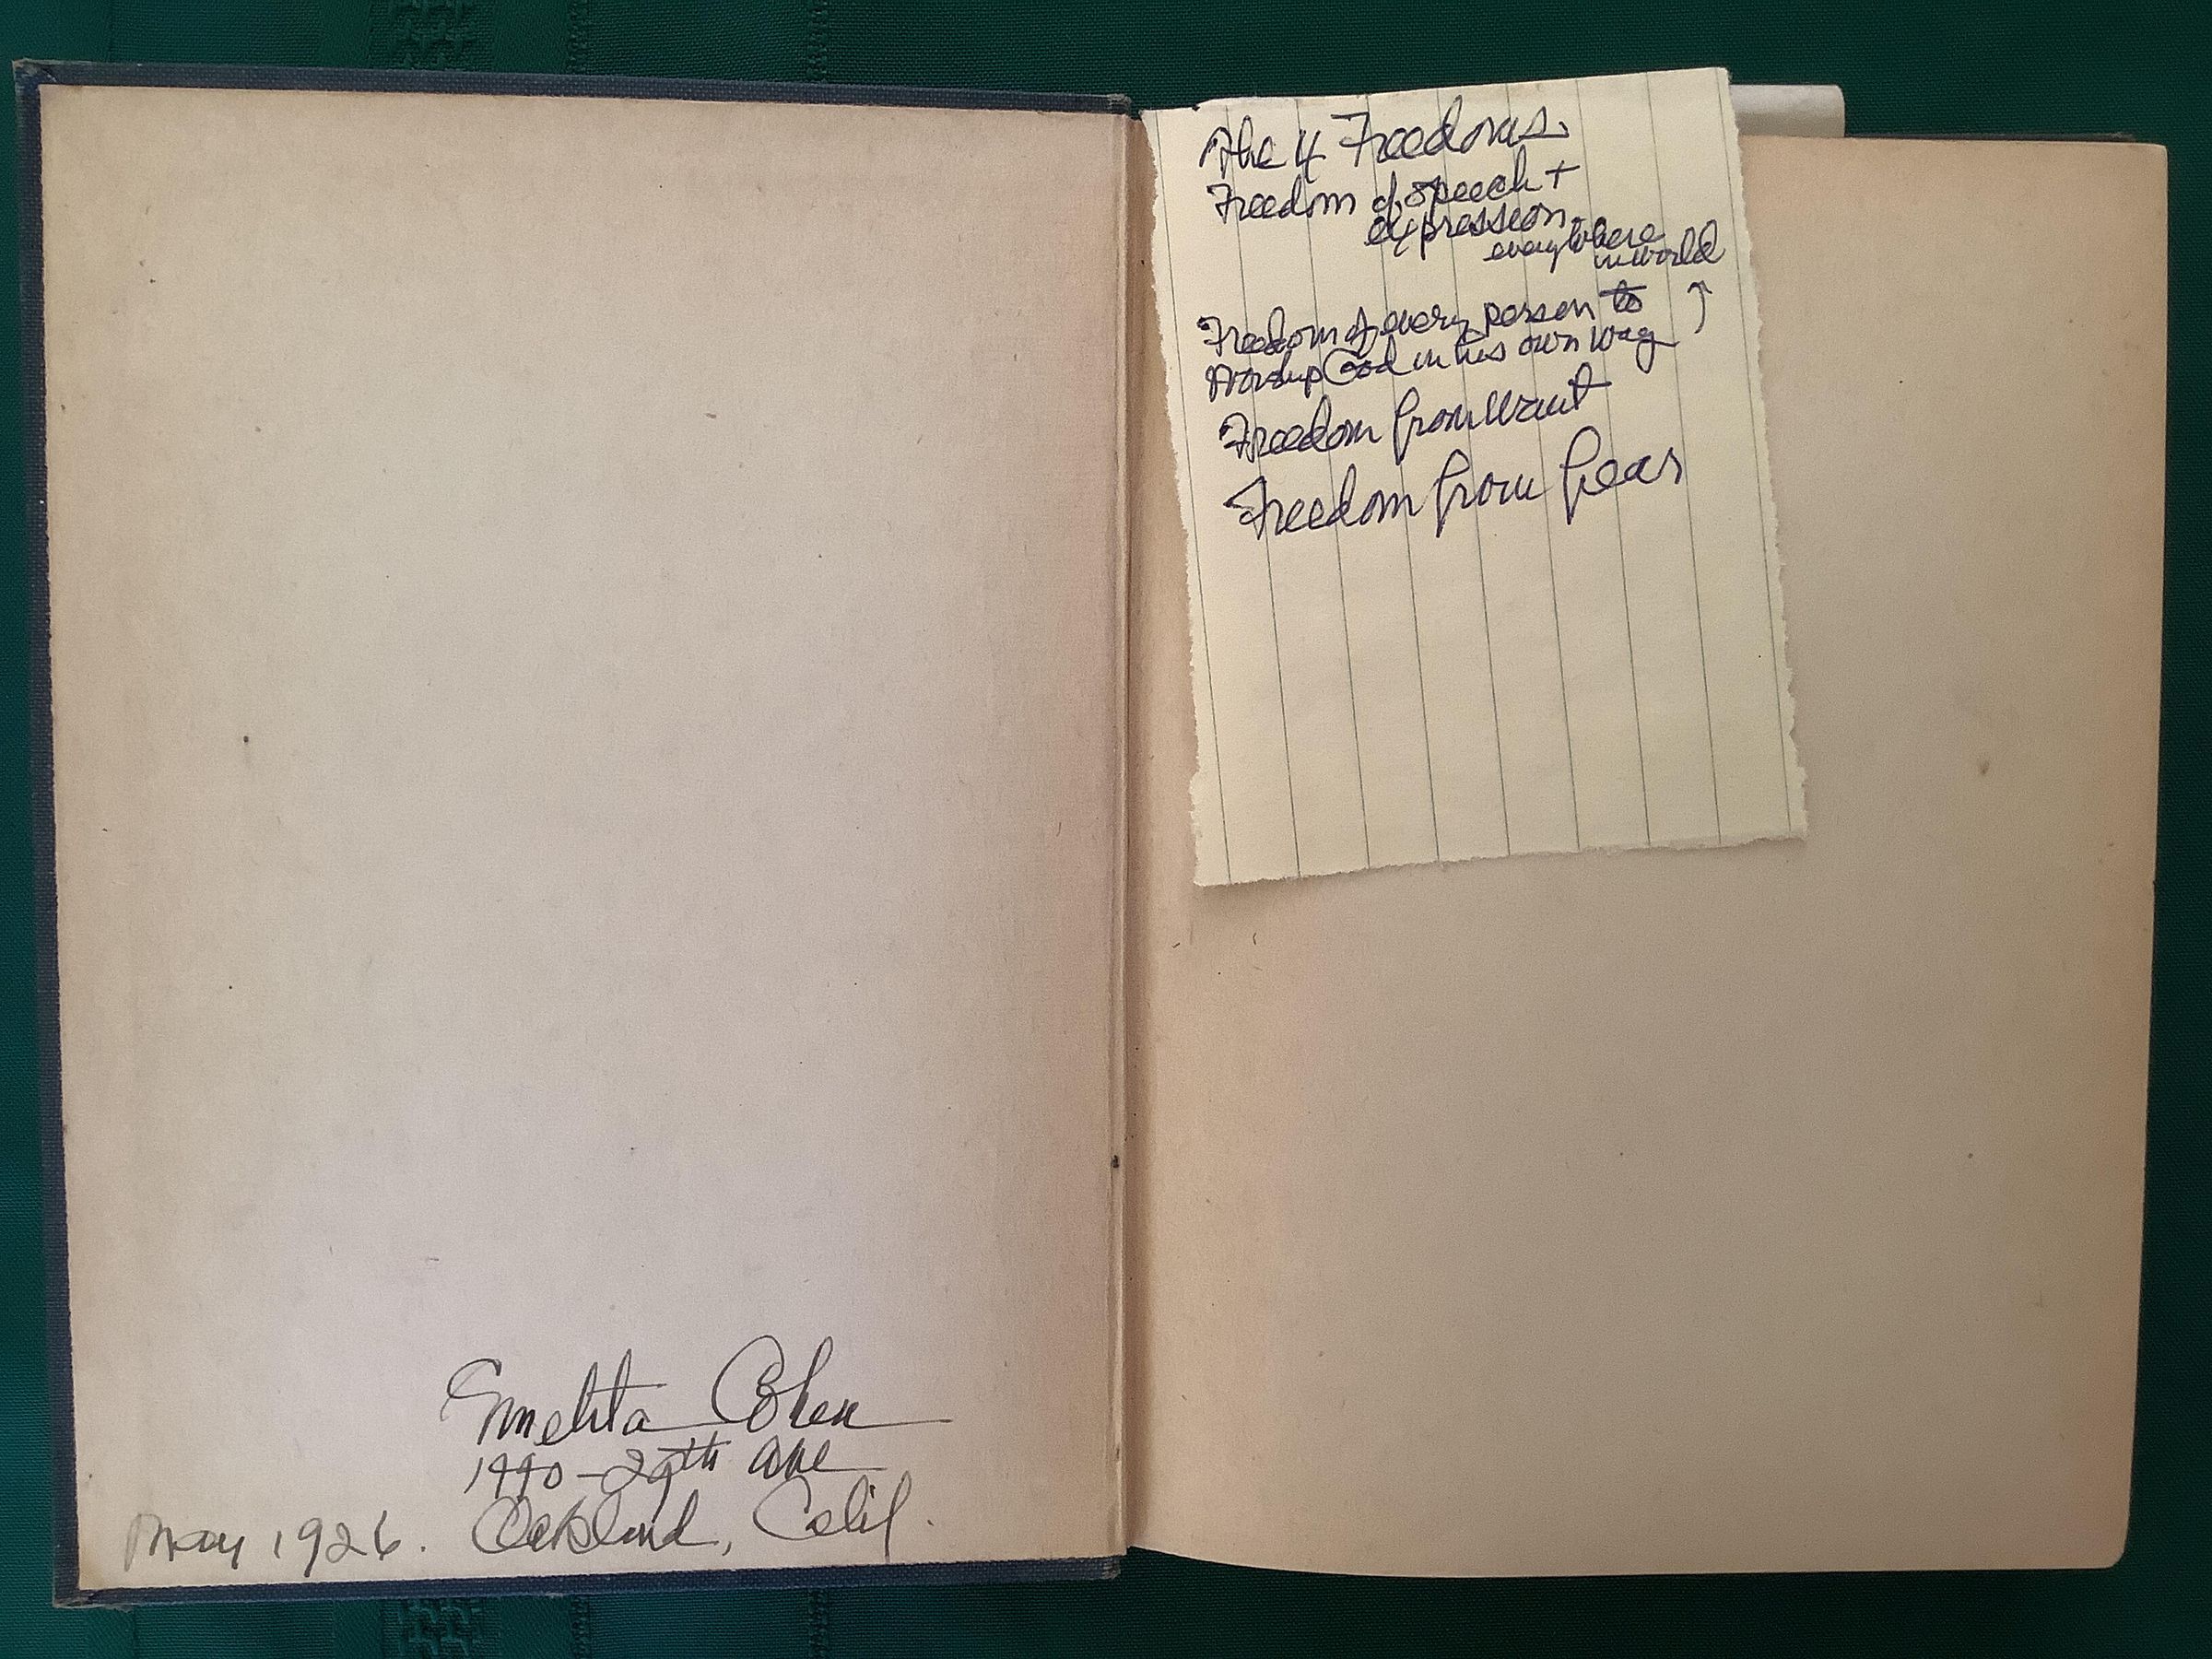 The 4 Freedoms.
Freedom of speech +
expression
everywhere
in world
Freedom of every person to
Worship God in his own way ↑
Freedom from want
Freedom from fear
Cohen
29th Ave
May 1926. Oakland, Calif.